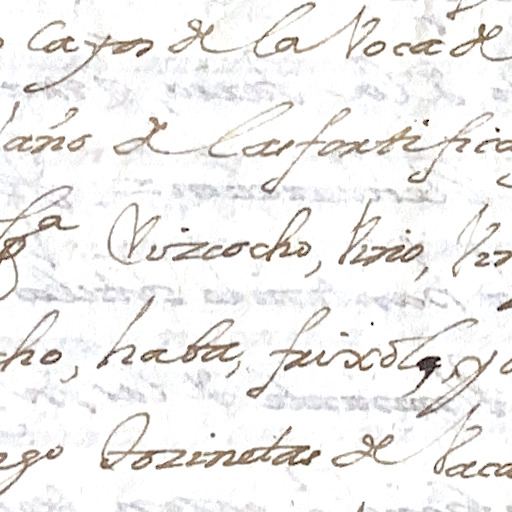 Cayos de la Voca de
año de las fortifica
Vizcocho, Vino, Vin
cho, haba, frixol, y
rgo Tozinetas de Vaca